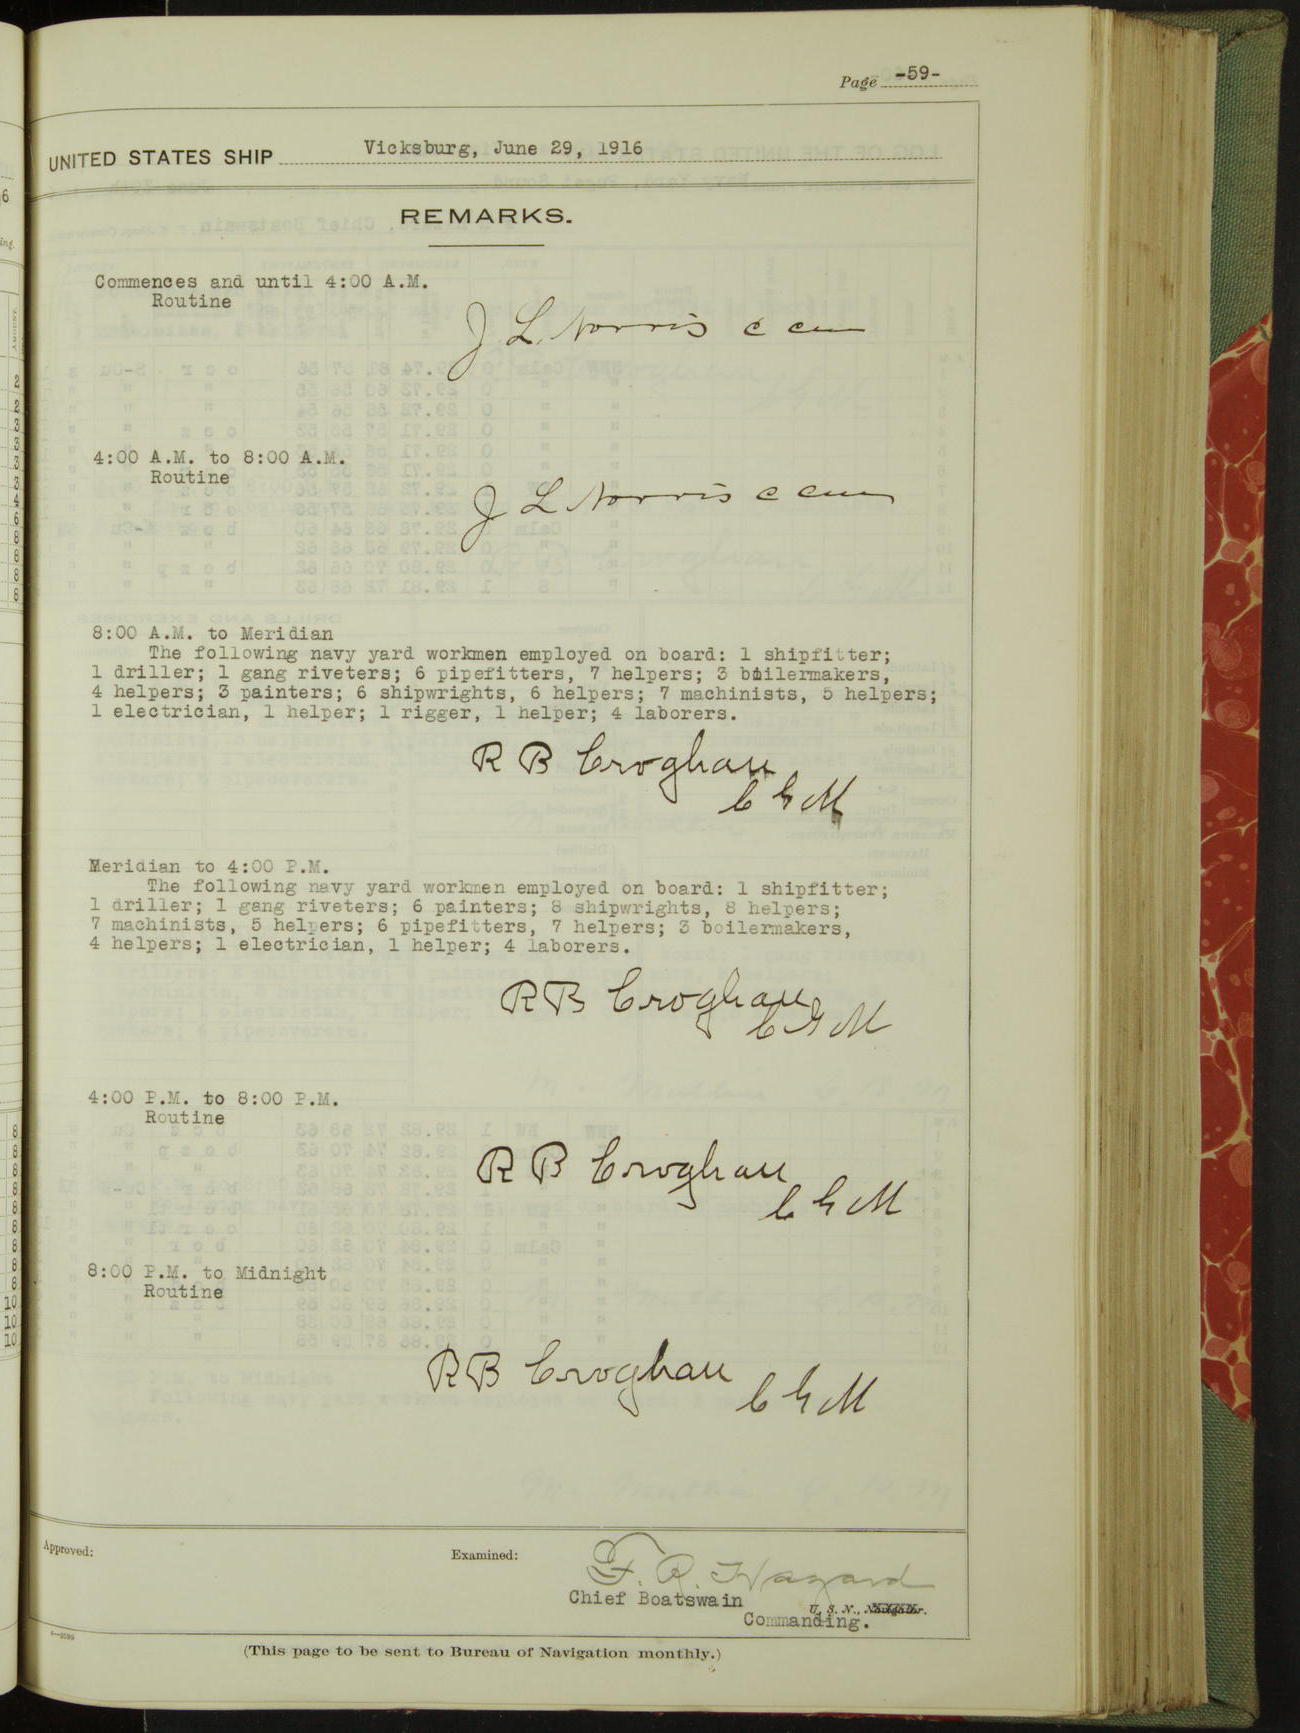 Page -59-
UNITED STATES SHIP Vicksburg, June 29, 1916
REMARKS.
Commences and until 4:00 A.M.
Routine
J L Norris c cm
4:00 A.M. to 8:00 A.M.
Routine
J L Norris c cm
8:00 A.M. to Meridian
The following navy yard workmen employed on board: 1 shipfitter;
1 driller; 1 gang riveters; 6 pipefitters, 7 helpers; 3 boilermakers,
4 helpers; 3 painters; 6 shipwrights, 6 helpers; 7 machinists, 5 helpers;
1 electrician, 1 helper; 1 rigger, 1 helper; 4 laborers.
R B Croghan
C G M
Meridian to 4:00 P.M.
The following navy yard workmen employed on board: 1 shipfitter;
1 driller; 1 gang riveters; 6 painters; 8 shipwrights, 8 helpers;
7 machinists, 5 helpers; 6 pipefitters, 7 helpers; 3 boilermakers,
4 helpers; 1 electrician, 1 helper; 4 laborers.
R B Croghan
C G M
4:00 P.M. to 8:00 P.M.
Routine
R B Croghan
C G M
8:00 P.M. to Midnight
Routine
R B Croghan
C G M
Approved:
Examined:
F. R. Hazard
Chief Boatswain
U. S. N., Navigator.
Commanding.
(This page to be sent to Bureau of Navigation monthly.)